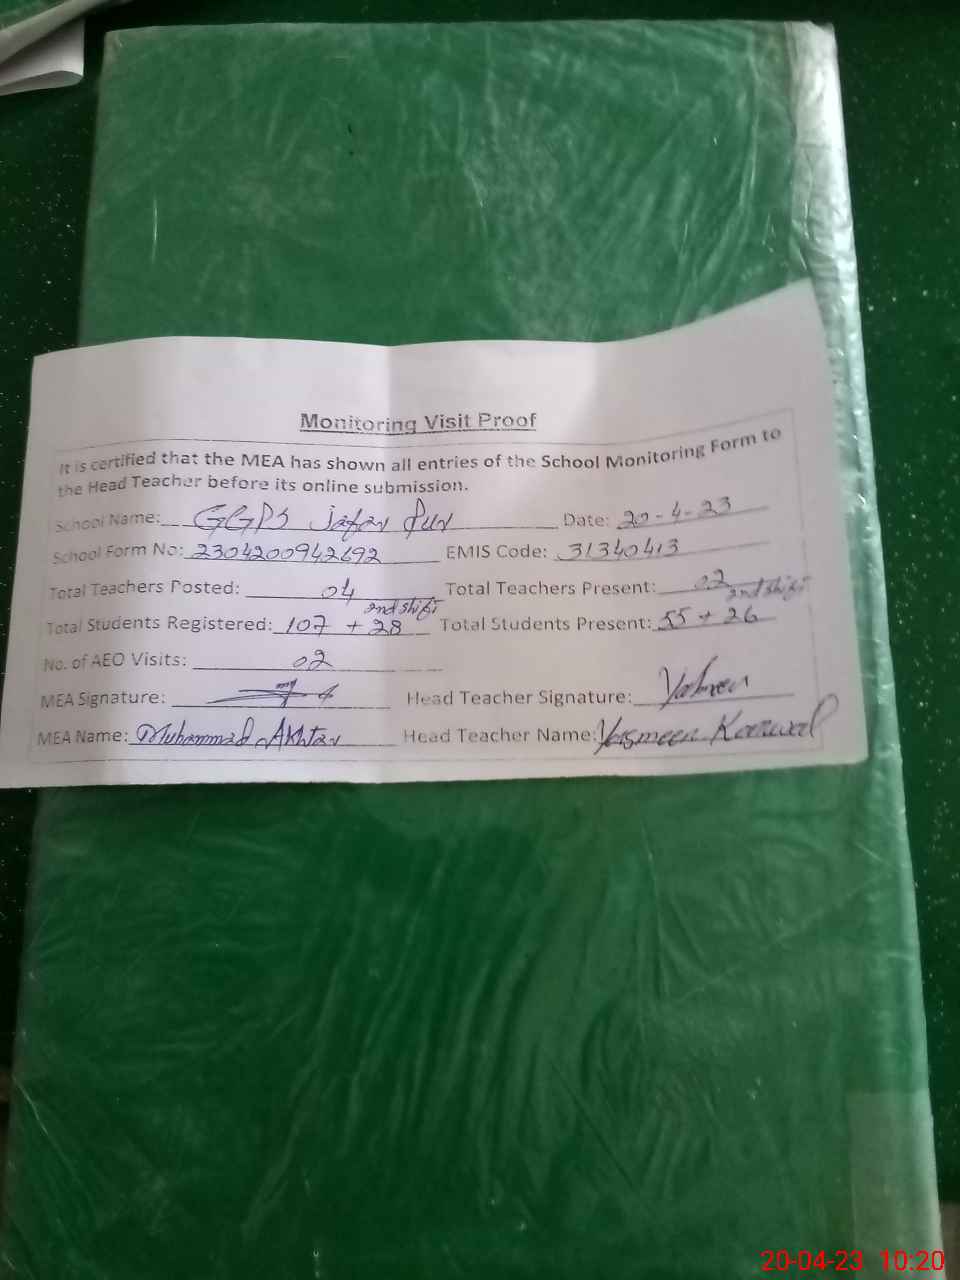 Monitoring Visit Proof
It is certified that the MEA has shown all entries of the School Monitoring Form to
the Head Teacher before its online submission.
School Name: GGPS Jafar Pur Date: 20-4-23
School Form No: 2304200942692 EMIS Code: 31340413
Total Teachers Posted: 04 Total Teachers Present: 02
2nd shift 2nd shift
Total Students Registered: 107 + 28 Total Students Present: 55 + 26
No. of AEO Visits: 02
MEA Signature: Head Teacher Signature:
MEA Name: Muhammad Akhtar Head Teacher Name: Yasmeen
20-04-23 10:20